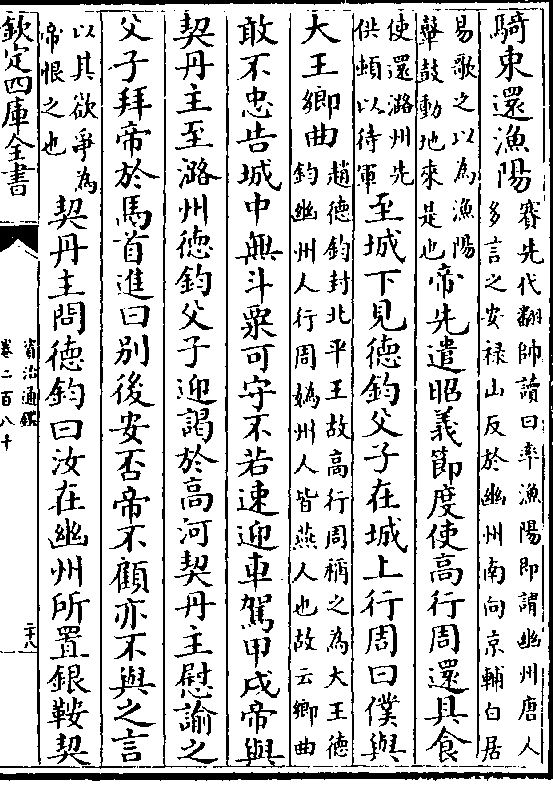 騎東還漁陽
賽先代翻帥讀曰率漁陽即謂幽州唐人
多言之安禄山反於幽州南向京輔白居
易歌之以為漁陽
鼙鼓動地來是也
帝先遣昭義節度使高行周還具食
使還潞州先
供頓以待軍
至城下見德鈞父子在城上行周曰僕與
大王鄉曲
趙德鈞封北平王故高行周稱之為大王德
鈞幽州人行周媯州人皆燕人也故云鄉曲
敢不忠告城中無斗粟可守不若速迎車駕甲戌帝與
契丹主至潞州德鈞父子迎謁於高河契丹主慰諭之
父子拜帝於馬首進曰別後安否帝不顧亦不與之言
以其欲爭為
帝恨之也
契丹主問德鈞曰汝在幽州所置銀鞍契
欽定四庫全書
資治通鑑
卷二百八十
二十八